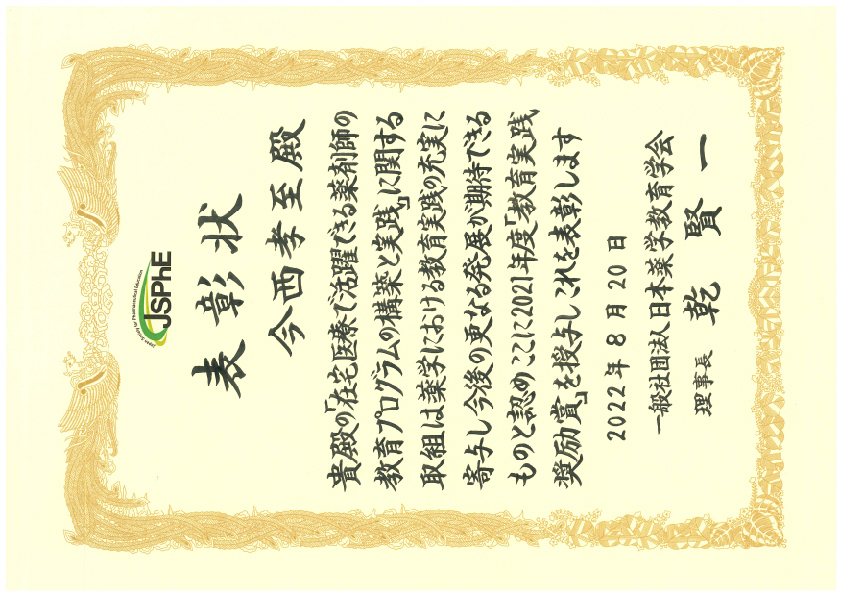 Japan Society for Pharmaceutical Education
JSPhE
表彰状
今西孝至殿
貴殿の「在宅医療で活躍できる薬剤師の
教育プログラムの構築と実践」に関する
取組は薬学における教育実践の充実に
寄与し今後の更なる発展が期待できる
ものと認めここに2021年度「教育実践
奨励賞」を授与しこれを表彰します
2022年8月20日
一般社団法人日本薬学教育学会
理事長 乾賢一